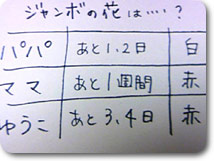 ジャンボの花は‥‥?
パパ あと1、2日 白
ママ あと1週間 赤
ゆうこ あと3、4日 赤